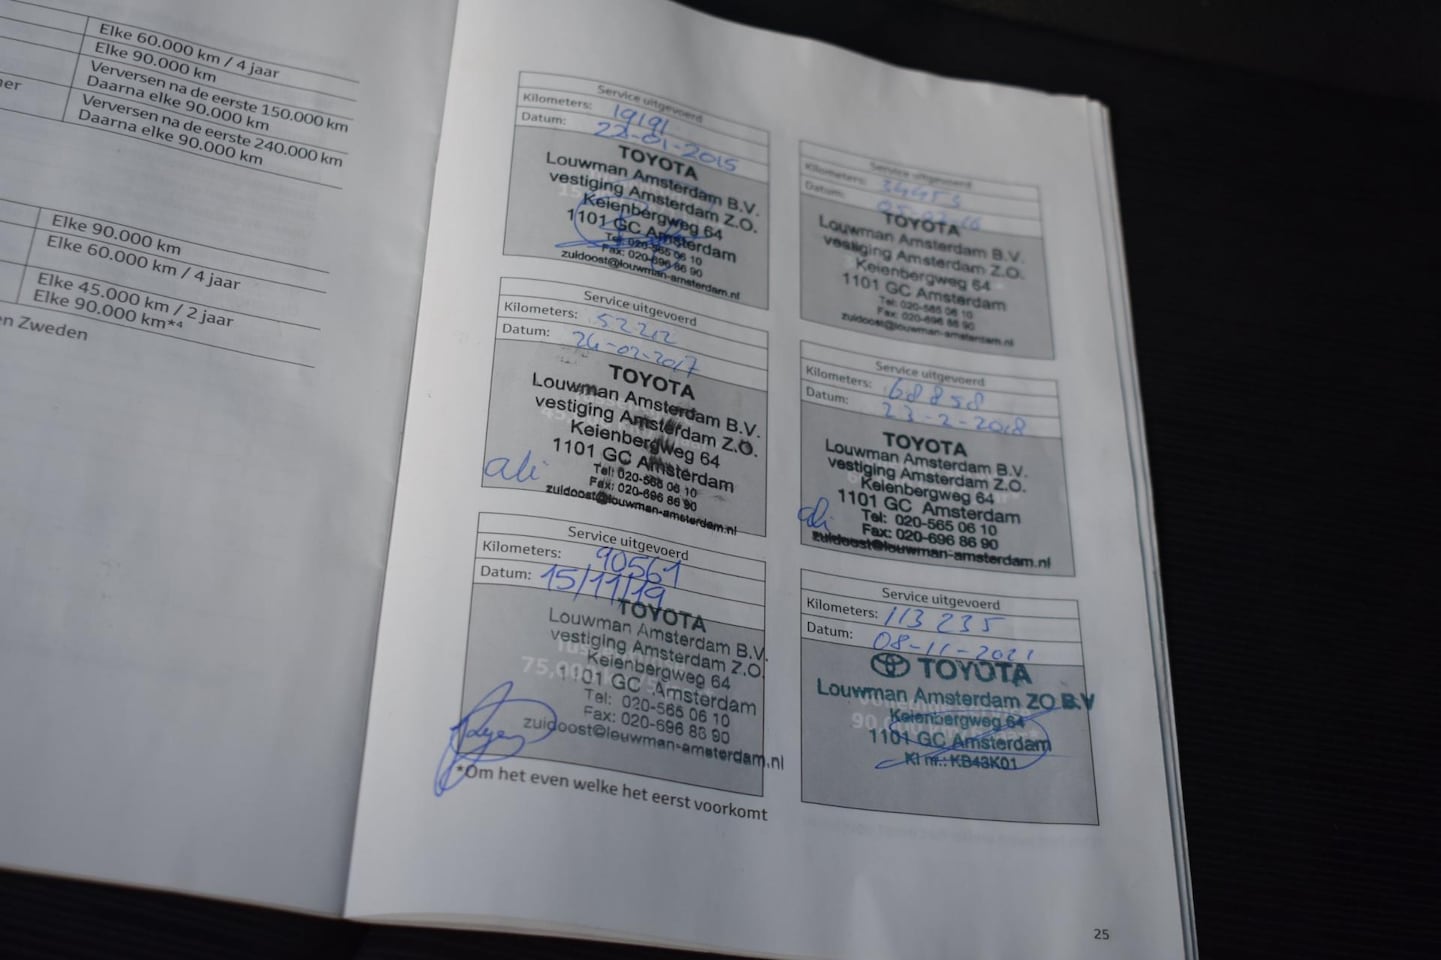 Elke 60.000 km / 4 jaar
Elke 90.000 km
Verversen na de eerste 150.000 km
Daarna elke 90.000 km
Verversen na de eerste 240.000 km
Daarna elke 90.000 km
Elke 90.000 km
Elke 60.000 km / 4 jaar
Elke 45.000 km / 2 jaar
Elke 90.000 km*⁴
en Zweden
Service uitgevoerd
Kilometers: 19191
Datum: 22-01-2015
TOYOTA
Louwman Amsterdam B.V.
vestiging Amsterdam Z.O.
Keienbergweg 64
1101 GC Amsterdam
Tel: 020-565 06 10
Fax: 020-696 86 90
zuidoost@louwman-amsterdam.nl
Service uitgevoerd
Kilometers: 34453
Datum:
TOYOTA
Louwman Amsterdam B.V.
vestiging Amsterdam Z.O.
Keienbergweg 64
1101 GC Amsterdam
Tel: 020-565 06 10
Fax: 020-696 86 90
zuidoost@louwman-amsterdam.nl
Service uitgevoerd
Kilometers: 52212
Datum: 24-02-2017
TOYOTA
Louwman Amsterdam B.V.
vestiging Amsterdam Z.O.
Keienbergweg 64
1101 GC Amsterdam
ali
Tel: 020-565 06 10
Fax: 020-696 86 90
zuidoost@louwman-amsterdam.nl
Service uitgevoerd
Kilometers: 68858
Datum: 23-2-2018
TOYOTA
Louwman Amsterdam B.V.
vestiging Amsterdam Z.O.
Keienbergweg 64
1101 GC Amsterdam
ali
Tel: 020-565 06 10
Fax: 020-696 86 90
zuidoost@louwman-amsterdam.nl
Service uitgevoerd
Kilometers: 90561
Datum: 15/11/19
TOYOTA
Louwman Amsterdam B.V.
vestiging Amsterdam Z.O.
Keienbergweg 64
75.000
1101 GC Amsterdam
Tel: 020-565 06 10
Fax: 020-696 86 90
zuidoost@louwman-amsterdam.nl
*Om het even welke het eerst voorkomt
Service uitgevoerd
Kilometers: 113 235
Datum: 08-11-2021
TOYOTA
Louwman Amsterdam ZO B.V
Keienbergweg 64
1101 GC Amsterdam
KI nr.: KB43K01
25